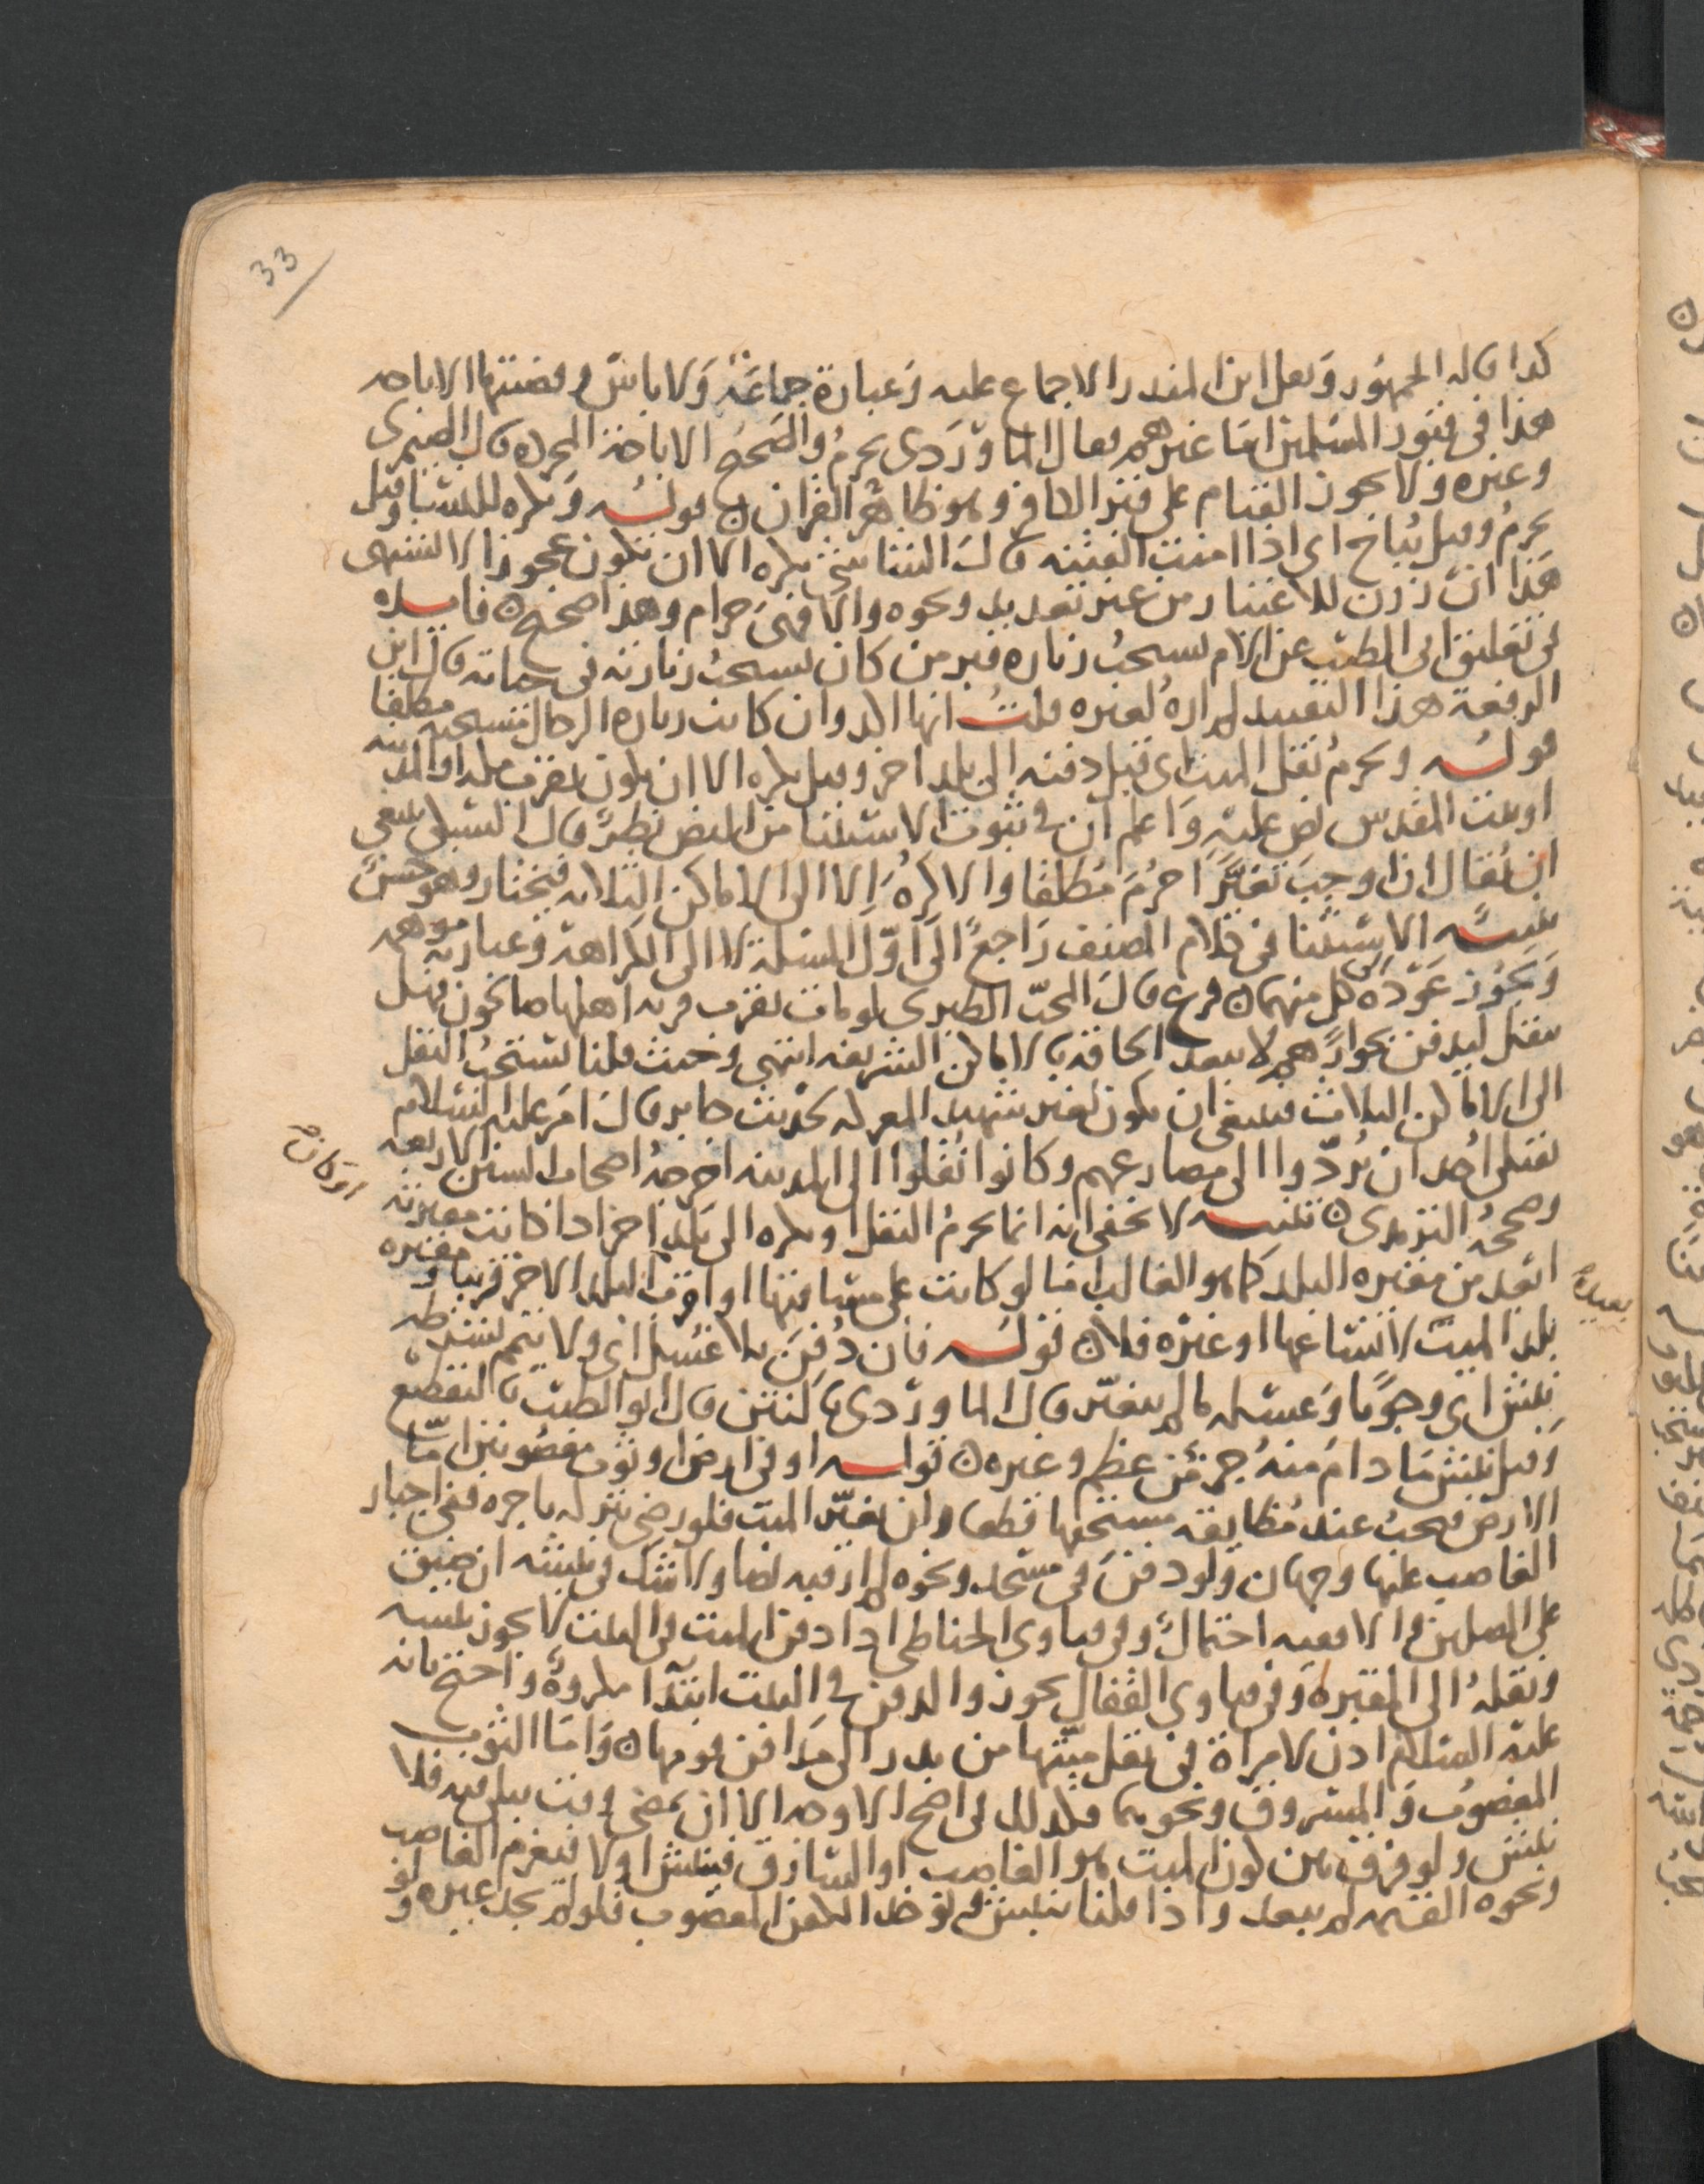 33
كذا قاله الجمهور ونقل ابن المنذر الاجماع عليه وعبارة جماعة ولا باس وقضيتها الاباحه
هذا في قبور المسلمين اما غيرهم فقال الماوردى يحرم والصحيح الاباحة المجرده قال الصيمرى
وغيره ولا يجوز القيام على قبر الكافر وهو ظاهر القران قوله وتكره للنسا وقيل
يحرم وقيل تباح اى اذا امنت الفتنه قال الشاشى يكره الا ان تكون عجوزا لا تشتهى
هذا ان زرن للاعتبار من غير تعديد ونحوه والا فهى حرام وهذا صحيح فايده
في تعليق ابى الطيب عن الام يستحب زيارة قبر من كان يستحب زيارته في حياته قال ابن
الرفعة هذا التقييد لم اره لغيره قلت انها اكد وان كانت زيارة الرجال مستحبه مطلقا
قوله ويحرم نقل الميت اى قبل دفنه الى بلد اخر وقيل يكره الا ان يكون بقرب مكه او المدينه
او بيت المقدس نص عليه واعلم ان في ثبوت الاستثنا من النص نظر قال السبكى ينبغى
ان يقال ان اوجب تغيرا حرم مطلقا والا كره الا الى الاماكن الثلاثه فيختار وهو حسن
تنبيه الاستثنا في كلام المصنف راجع الى اول المسلة لا الى الكراهة وعبارته موهمه
ويجوز عوده الى كل منهما فرع قال المحب الطبرى لو مات بقرب قريه اهلها صالحون فهل
ينقل ليدفن بجوارهم لا يبعد الحاقه بالاماكن الشريفه انتهى وحيث قلنا يستحب النقل
الى الاماكن الثلاث فينبغى ان يكون لغير شهيد المعركه لحديث جابر قال امر عليه السلام
بقتلى احد ان يردوا الى مصارعهم وكانوا نقلوا الى المدينه اخرجه اصحاب السنن الاربعه
وصححه الترمذى تنبيه لا يخفى انه انما يحرم النقل او يكره الى بلد اخر اذا كانت مقبرته
او كان
ابعد من مقبره البلد كما هو الغالب اما لو كانت على مسافتها او اقرب البلد الاخر قريبا ومقبره
بعيدة
بلد الميت لاتساعها او غيره فلا قوله فان دفن بلا غسل اى ولا تيمم بشرطه
نبش اى وجوبا وغسل ما لم يتغير قال الماوردى بالنتن قال ابو الطيب بالتقطع
وقيل نبش ما دام منه جزء من عظم وغيره قوله او في ارض او ثوب مغصوبين اما
الارض فيجب عند مطالبة مستحقها قطعا وان تغير الميت فلو رضى بتركه باجره ففى اجبار
الغاصب عليها وجهان ولو دفن في مسجد ونحوه لم ار فيه نصا ولا شك في نبشه ان ضيق
على المصلين والا ففيه احتمال وفي فتاوى الحناطى اذا دفن الميت في البيت لا يجوز نبشه
ونقله الى المقبرة وفي فتاوى القفال يجوز والدفن في البيت ابتداء مكروه واحتج بانه
عليه السلام اذن لامراة في نقل ميتها من بدر الى مدافن قومها واما الثوب
المغصوب والمسروق ونحوهما فكذلك في اصح الاوجه الا ان يمضى وقت يبلى فيه فلا
نبش ولو فرق بين كون الميت هو الغاصب او السارق فينبش او لا فيغرم الغاصب
ونحوه القيمه لم يبعد واذا قلنا ينبش ويوخذ الكفن المغصوب فلو لم يجد غيره ولو